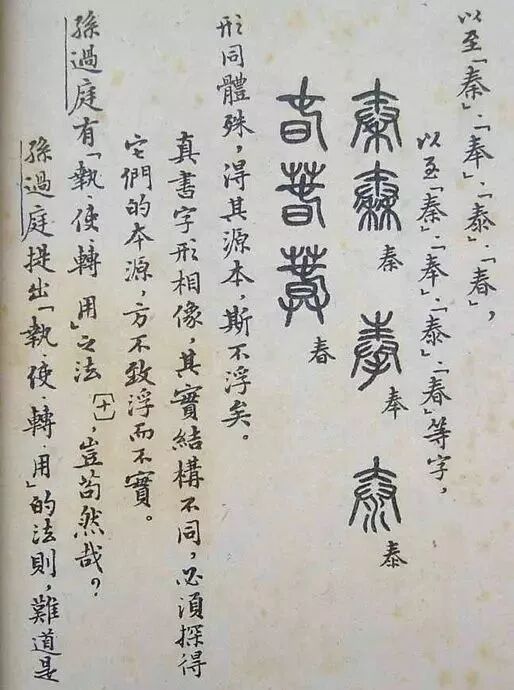 以至「秦」、「奉」、「泰」、「春」，
以至「秦」、「奉」、「泰」、「春」等字，
秦 奉 泰
春
形同體殊，得其源本，斯不浮矣。
真書字形相像，其實結構不同，必須探得
它們的本源，方不致浮而不實。
孫過庭有「執、使、轉、用」之法〔十〕，豈苟然哉？
孫過庭提出「執、使、轉、用」的法則，難道是